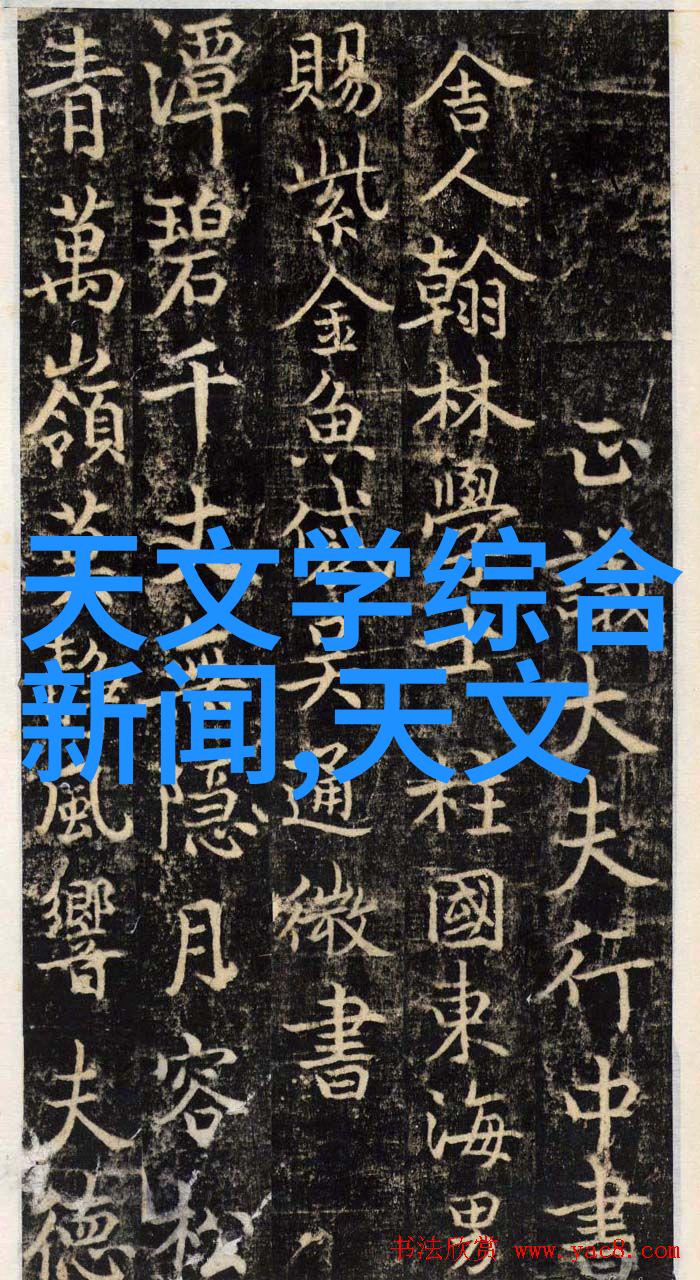 正議大夫行中書
舎人翰林學柱國東海男
賜紫金魚袋吴通微書
潭碧千丈隱月容松
青萬嶺葉風響夫德
天文学综合
新闻,天文
书法欣赏 www.yac8.com